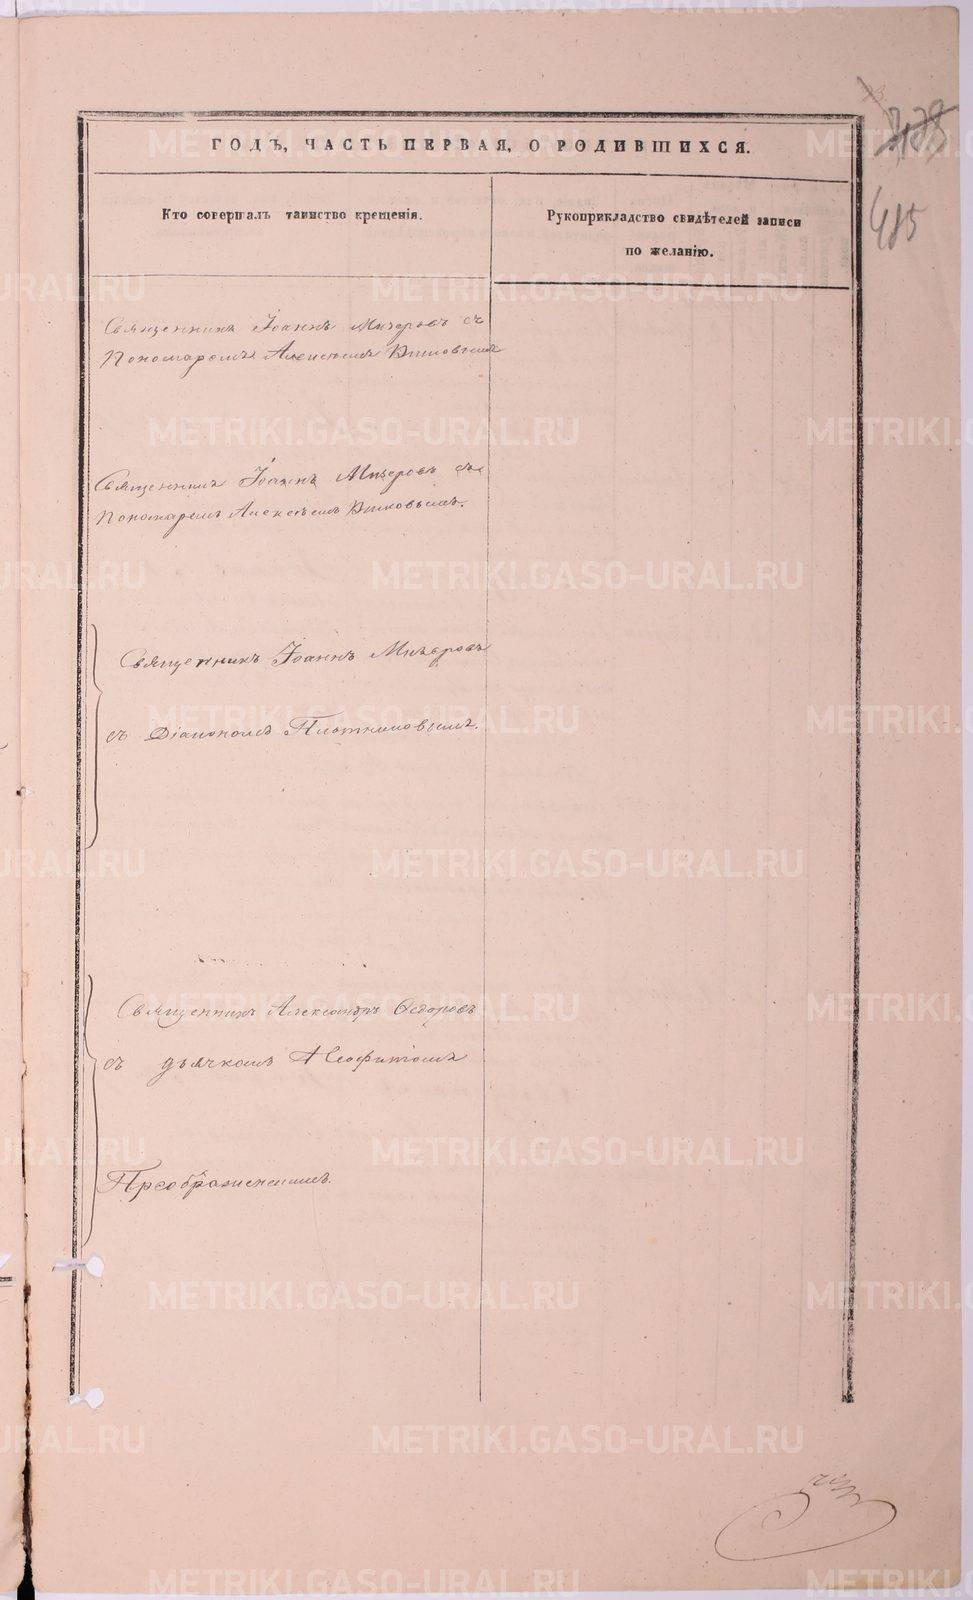 485
ГОДЪ, ЧАСТЬ ПЕРВАЯ, О РОДИВШИХСЯ.
Кто совершалъ таинство крещенія.
Рукоприкладство свидѣтелей записи
по желанію.
Священникъ Іоаннъ Мичеровъ съ
Пономаремъ Алексѣемъ
Священникъ Іоаннъ Мичеровъ съ
Пономаремъ Алексѣемъ
Священникъ Іоаннъ Мичеровъ
съ Діакономъ Плотниковымъ.
Священникъ Александръ Ѳедоровъ
съ дьячкомъ Неофитомъ
Преображенскимъ.
METRIKI.GASO-URAL.RU